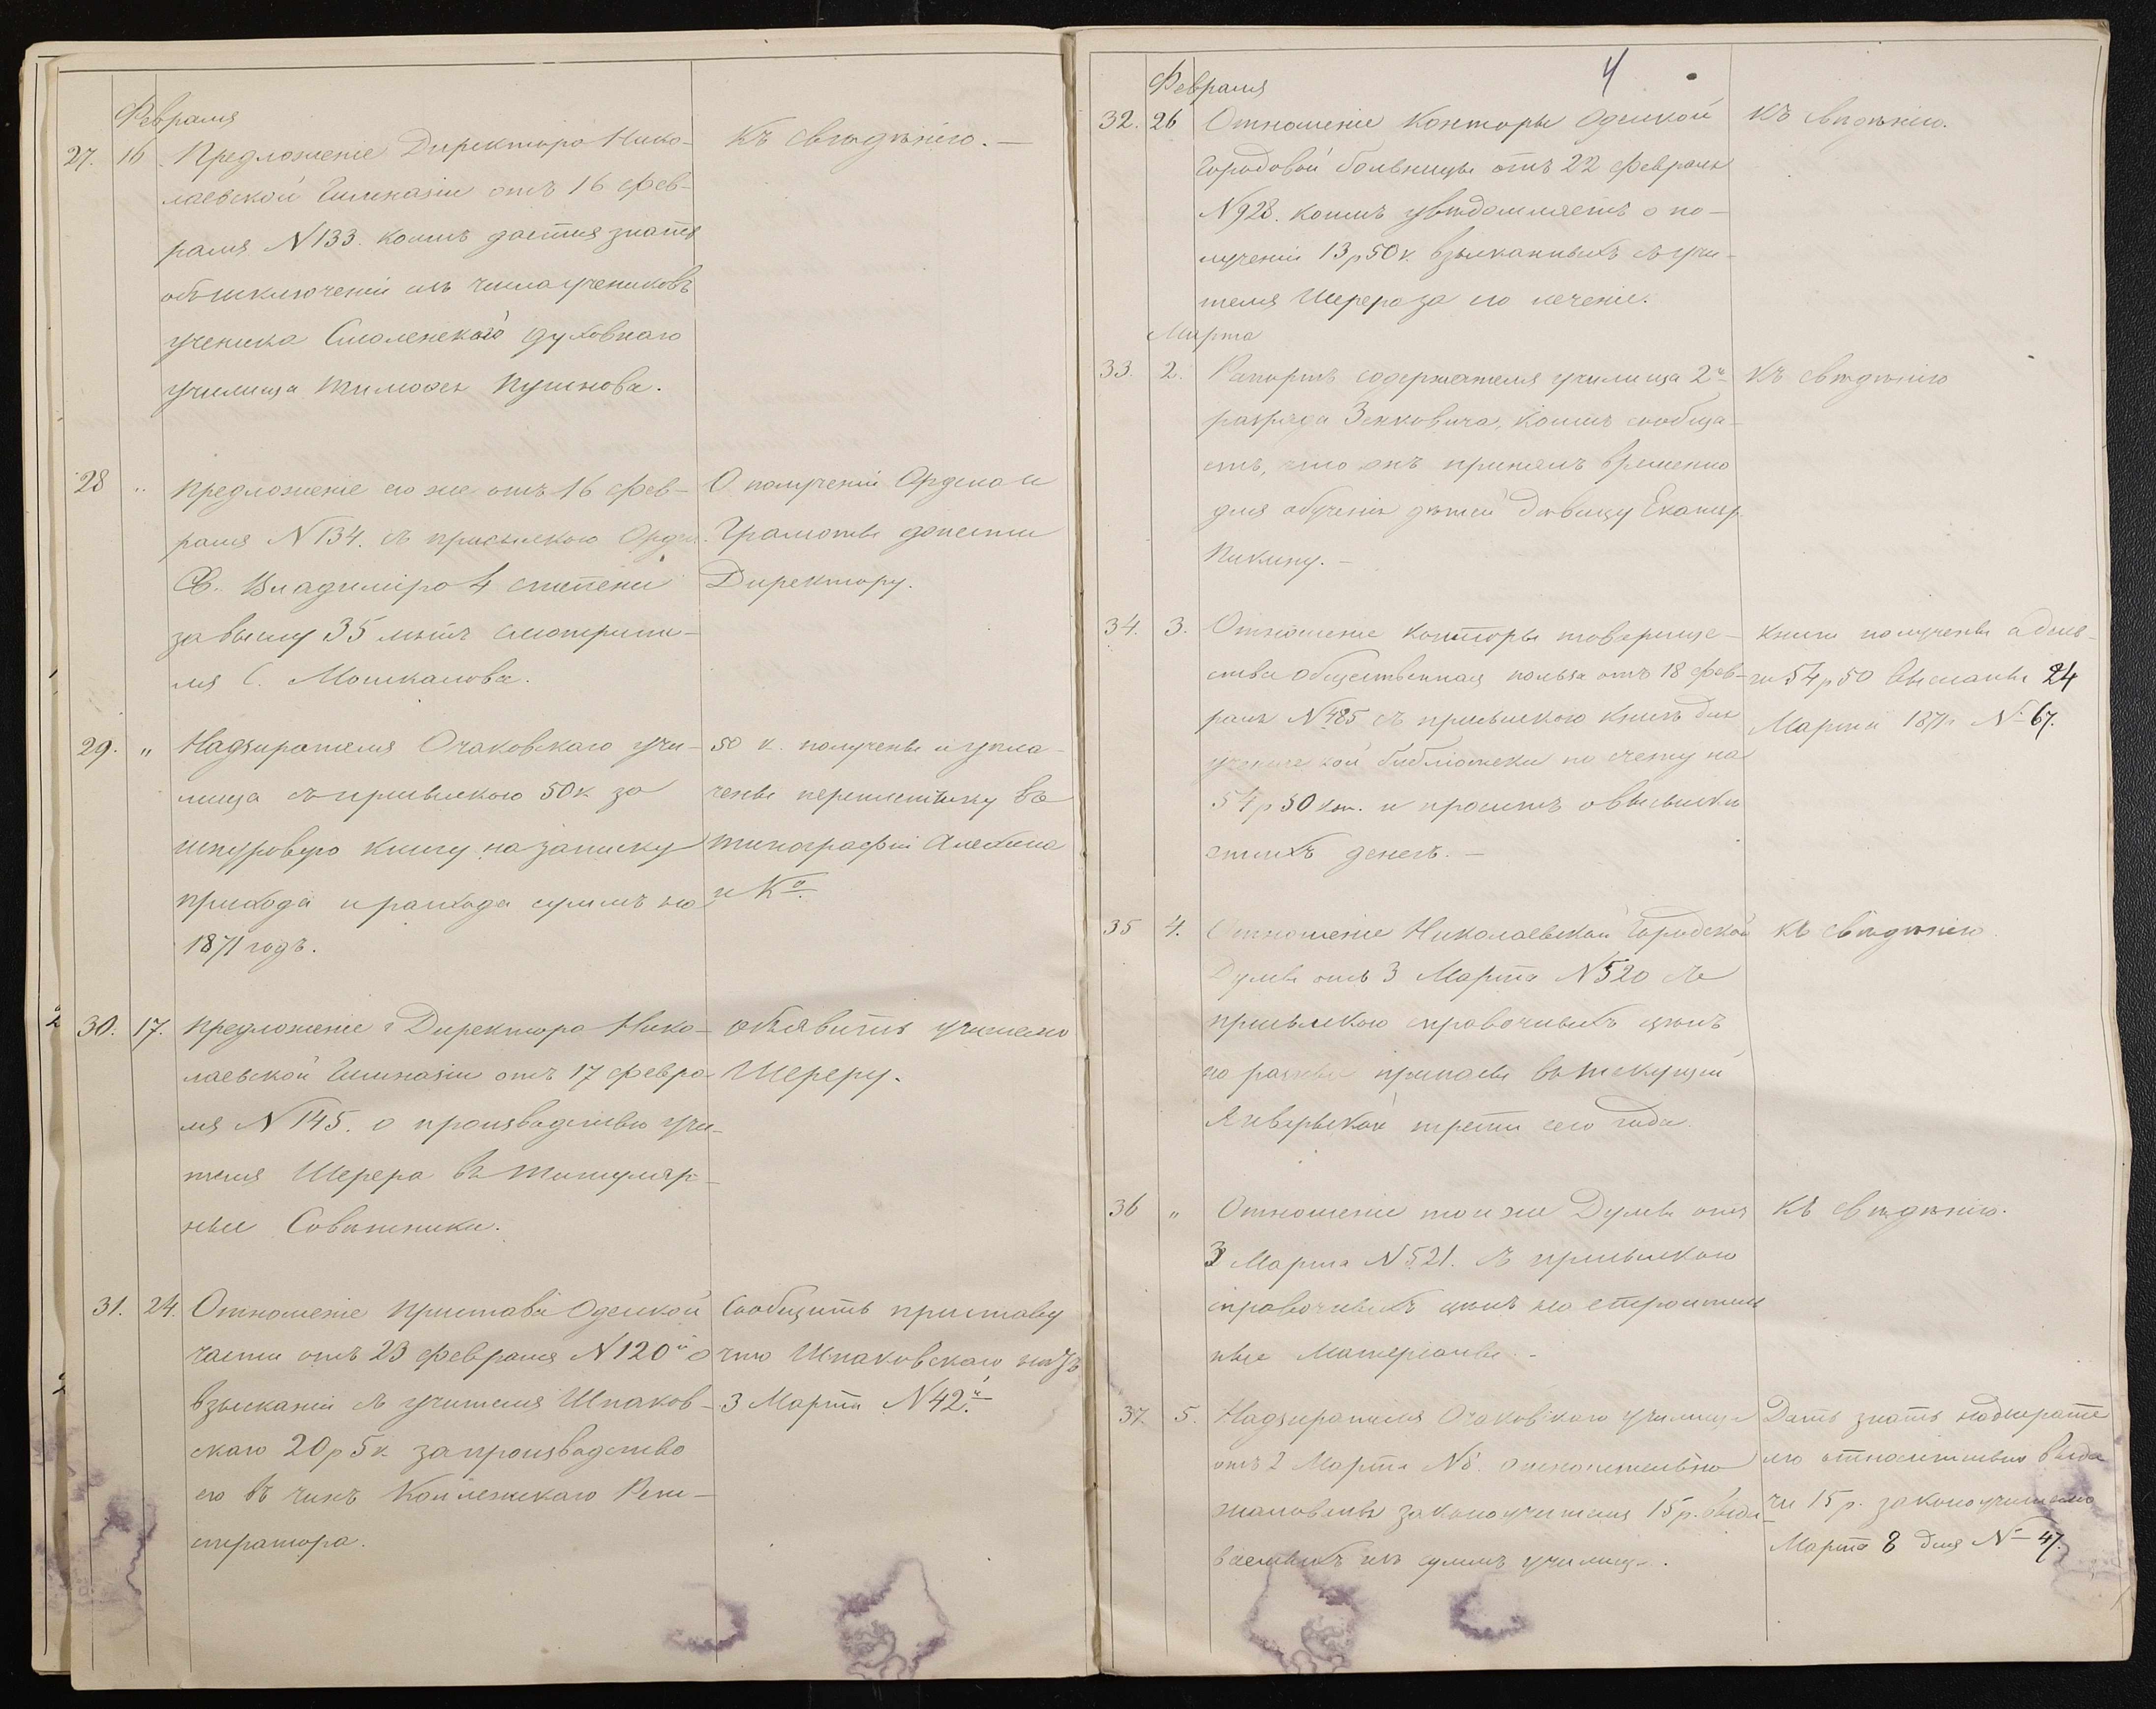 Февраля
27. 16. Предложеніе Директора Нико-
лаевской Гимназіи отъ 16 фев-
раля N 133. коимъ дается знать
объ исключеніи изъ числа учениковъ
ученика Смоленскаго духовнаго
училища Тимофея Пугинова.
Къ свѣдѣнію. —
28 „ Предложеніе его же отъ 16 фев-
раля N 134. съ присылкою Орде
Св. Владиміра 4 степени
за выслу 35 лѣтъ смотрите-
ля С. Мошкалова.
О полученіи Ордена и
Грамоты донести
Директору.
29. „ Надзирателя Очаковскаго учи-
лища съ присылкою 50 к за
шнуровую книгу на записку
прихода и расхода суммъ на
1871 годъ.
50 к. получены и упла-
чены переплетчику въ
типографіи Алехина
и Ко.
30. 17. Предложеніе Директора Нико-
лаевской Гимназіи отъ 17 февра-
ля N 145. о производствѣ учи-
теля Шерера въ Титуляр-
ные Совѣтники.
объявить учителю
Шереру.
31. 24. Отношеніе Пристава Одесской
части отъ 23 февраля N 120 о
взысканіи съ учителя Шпаков-
скаго 20 р 5 к за производство
его въ чинъ Коллежскаго Реги-
стратора.
Сообщить приставу
что Шпаковскаго нѣтъ
3 Марта N 42.
4
Февраля
32. 26 Отношеніе Конторы Одесской
Городовой больницы отъ 22 февраля
N 928. коимъ увѣдомляетъ о по-
лученіи 13 р 50 к. взысканныхъ съ учи-
теля Шерера за его леченіе.
Къ свѣдѣнію.
Марта
33. 2. Рапортъ содержателя училища 2
разряда Зенковича, коимъ сообща-
етъ, что онъ принялъ временно
для обученія дѣтей дѣвицу Екатер.
Пиклину. —
Къ свѣдѣнію
34. 3. Отношеніе Конторы товарище-
ства общественная польза отъ 18 фев-
раля N 485 съ присылкою книгъ для
ученической библіотеки по счету на
54 р 50 коп. и проситъ о высылкѣ
этихъ денегъ. —
Книги получены а день-
ги 54 р 50 высланы 24
Марта 1871 г N 67.
35 4. Отношеніе Николаевской Городской
Думы отъ 3 Марта N 520 съ
присылкою справочныхъ цѣнъ
на разные припасы въ текущей
Январьской трети сего года.
Къ свѣдѣнію.
36 „ Отношеніе той же Думы отъ
3 Марта N 521. съ присылкою
справочныхъ цѣнъ на строитель
ные Матеріалы. -
Къ свѣдѣнію.
37. 5. Надзирателя Очаковскаго училища
отъ 2 Марта N 8. относительно
жалованья законоучителя 15 р. выда
ваемыхъ изъ суммъ училища.
Дать знать надзирате
лю относительно выда
чи 15 р. законоучителю
Марта 8 дня N 47.